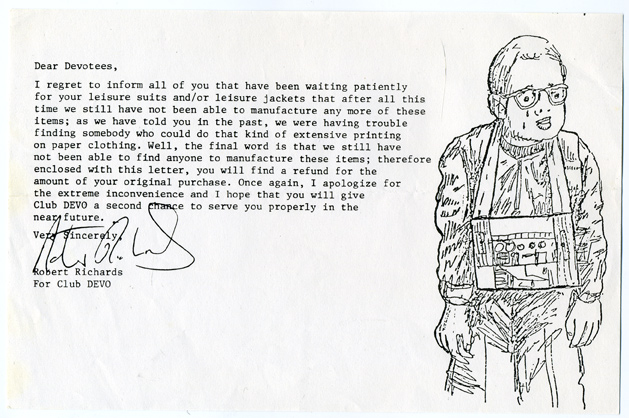 Dear Devotees,
I regret to inform all of you that have been waiting patiently
for your leisure suits and/or leisure jackets that after all this
time we still have not been able to manufacture any more of these
items; as we have told you in the past, we were having trouble
finding somebody who could do that kind of extensive printing
on paper clothing. Well, the final word is that we still have
not been able to find anyone to manufacture these items; therefore
enclosed with this letter, you will find a refund for the
amount of your original purchase. Once again, I apologize for
the extreme inconvenience and I hope that you will give
Club DEVO a second chance to serve you properly in the
near future.
Very Sincerely,
Robert Richards
For Club DEVO